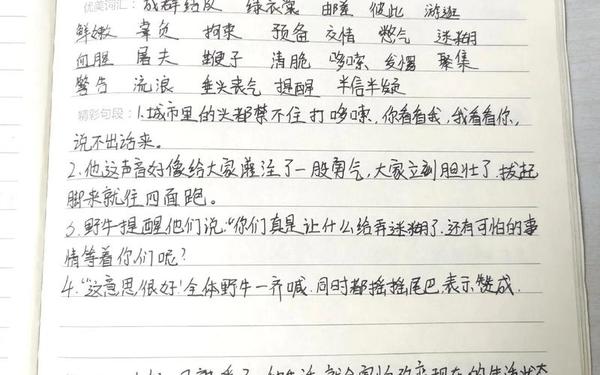 优美词汇: 成群结队 绿衣裳 由睡 彼此 游逛
鲜嫩 辜负 拘束 预备 交情 憋气 迷糊
血腥 屠夫 鞭子 清脆 哆嗦 发愣 聚集
警告 流浪 垂头丧气 提醒 半信半疑
精彩句段: 1.城市里的头都禁不住打哆嗦,你看看我,我看看你,
说不出话来。
2.他这声音好像给大家灌注了一股勇气,大家立刻胆壮了.拔起
脚来就往四面跑。
3.野牛提醒他们说:“你们真是让什么给弄迷糊了.还有可怕的事
情等着你们呢?
4.“这意思很好!全体野牛一齐喊.同时都摇摇尾巴.表示赞成.
现在的生活状态